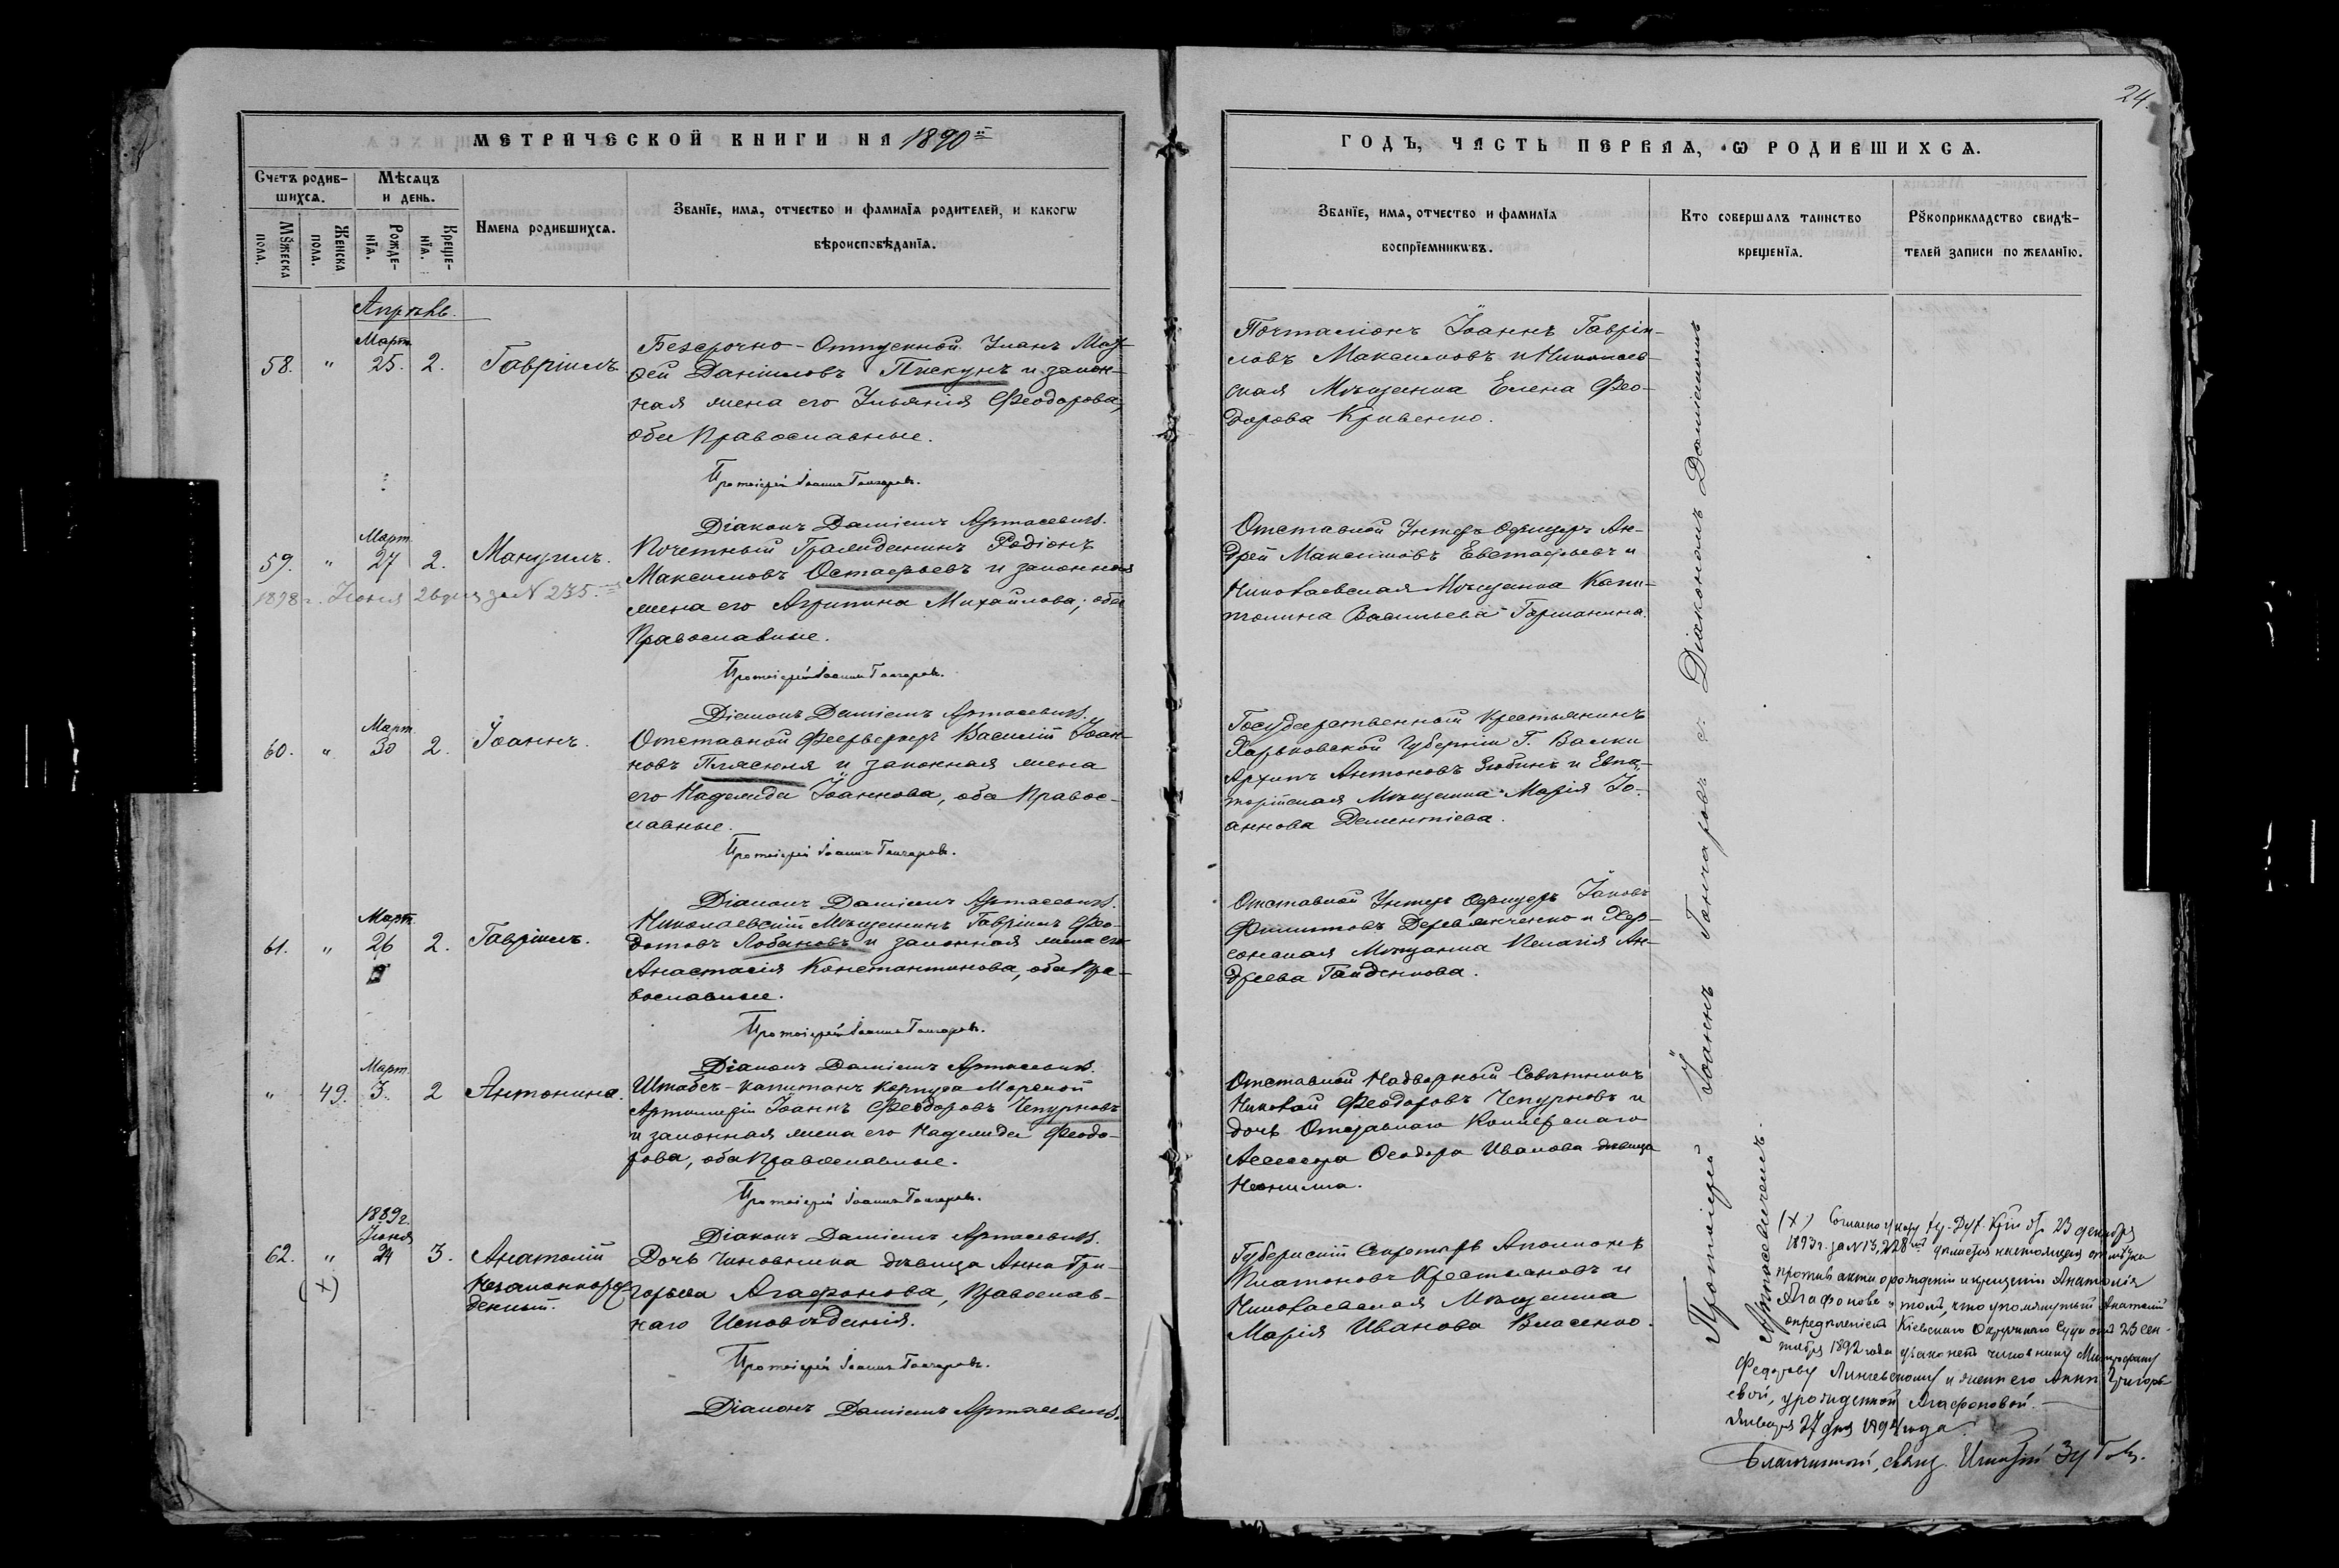 24.
МЕТРИЧЕСКОЙ КНИГИ НА 1890й
ГОДЪ, ЧАСТЬ ПЕРВАЯ, Ѡ РОДИВШИХСѦ.
Счетъ родив-
шихсѧ.
Мѣсѧцъ
и день.
Мꙋжеска
пола.
Женска
пола.
Рожде-
нїѧ.
Креще-
нїѧ.
Имена родившихсѧ.
Званїе, имѧ, отчество и фамилїѧ родителей, и какогѡ
вѣроисповѣданїѧ.
Званїе, имѧ, отчество и фамилїѧ
воспрїемникѡвъ.
Кто совершалъ таинство
крещенїѧ.
Рꙋкоприкладство свидѣ-
телей записи по желанїю.
Апрѣль.
58. " Март. 25. 2. Гавріилъ
Безсрочно-Отпускной Уланъ
Даніиловъ Пискунъ и закон-
ная жена его Ульянія Феодорова,
оба Православные.
Протоіерей Іоаннъ Гончаровъ.
Діаконъ Даміанъ Артасевичъ.
Почталіонъ Іоаннъ Гавріи-
ловъ Максимовъ и Николаев-
ская Мѣщанка Елена Фео-
дорова Кривенко.
59. " Март. 27 2. Мануилъ.
1898 г. Іюня 26 дня за № 235.
Почетный Гражданинъ Родіонъ
Максимовъ Остафьевъ и законная
жена его Агрипина Михайлова, оба
Православные.
Протоіерей Іоаннъ Гончаровъ.
Діаконъ Даміанъ Артасевичъ.
Отставной Унтеръ Офицеръ Ан-
дрей Максимовъ Евстафьевъ и
Николаевская Мѣщанка Капи-
толина Васильева Горманина.
60. " Март. 30 2. Іоаннъ.
Отставной Феерверкеръ Василій Іоан-
новъ Плясюля и законная жена
его Надежда Іоаннова, оба Правос-
лавные.
Протоіерей Іоаннъ Гончаровъ.
Діаконъ Даміанъ Артасевичъ.
Государственный Крестьянинъ
Харьковской Губерніи Г. Валки
Архипъ Антоновъ Зюбинъ и Евпа-
торійская Мѣщанка Марія Іо-
аннова Дементіева.
61. " Март. 26 2. Гавріилъ.
Николаевскій Мѣщанинъ Гавріилъ Фео-
дотовъ Лобановъ и законная жена его
Анастасія Константинова, оба Пра-
вославные.
Протоіерей Іоаннъ Гончаровъ.
Діаконъ Даміанъ Артасевичъ.
Отставной Унтеръ Офицеръ Іаковъ
Филиповъ Деревянченко и Хер-
сонская Мѣщанка Пелагія Ан-
дреева Гайденкова.
" 49. Март. 3. 2 Антонина.
Штабсъ-капитанъ Корпуса Морской
Артиллеріи Іоаннъ Феодоровъ Чепурновъ
и законная жена его Надежда Феодо-
рова, оба Православные.
Протоіерей Іоаннъ Гончаровъ.
Діаконъ Даміанъ Артасевичъ.
Отставной Надворный Совѣтникъ
Николай Феодоровъ Чепурновъ и
дочь Отставнаго Коллежскаго
Асессора Феодора Иванова дѣвица
Неонилла.
62. " 1889 г. Іюня 24 3. Анатолій
(X) Незаконнорож-
денный.
Дочь Чиновника дѣвица Анна Гри-
горьева Агафонова, Православ-
наго Исповѣданія.
Протоіерей Іоаннъ Гончаровъ.
Діаконъ Даміанъ Артасевичъ.
Губернскій Секретарь Аполлонъ
Платоновъ Крестьановъ и
Николаевская Мѣщанка
Марія Иванова Власенко.
Протоіерей Іоаннъ Гончаровъ съ Діакономъ Даміаномъ
Артасевичемъ.
(X) Согласно указу 23 декабря
1893 г. за № 13,228 дѣлается настоящая отмѣтка
противъ акта о рожденіи и крещеніи Анатолія
Агафонова въ томъ, что упомянутый Анатолій
опредѣленіемъ Кіевскаго Окружнаго Суда отъ 23 сен-
тября 1892 года узаконенъ чиновнику Митрофану
Федорову и женѣ его Аннѣ Григорь-
евой, урожденной Агафоновой.
Января 27 дня 1894 года.
Благочинный, свящ.